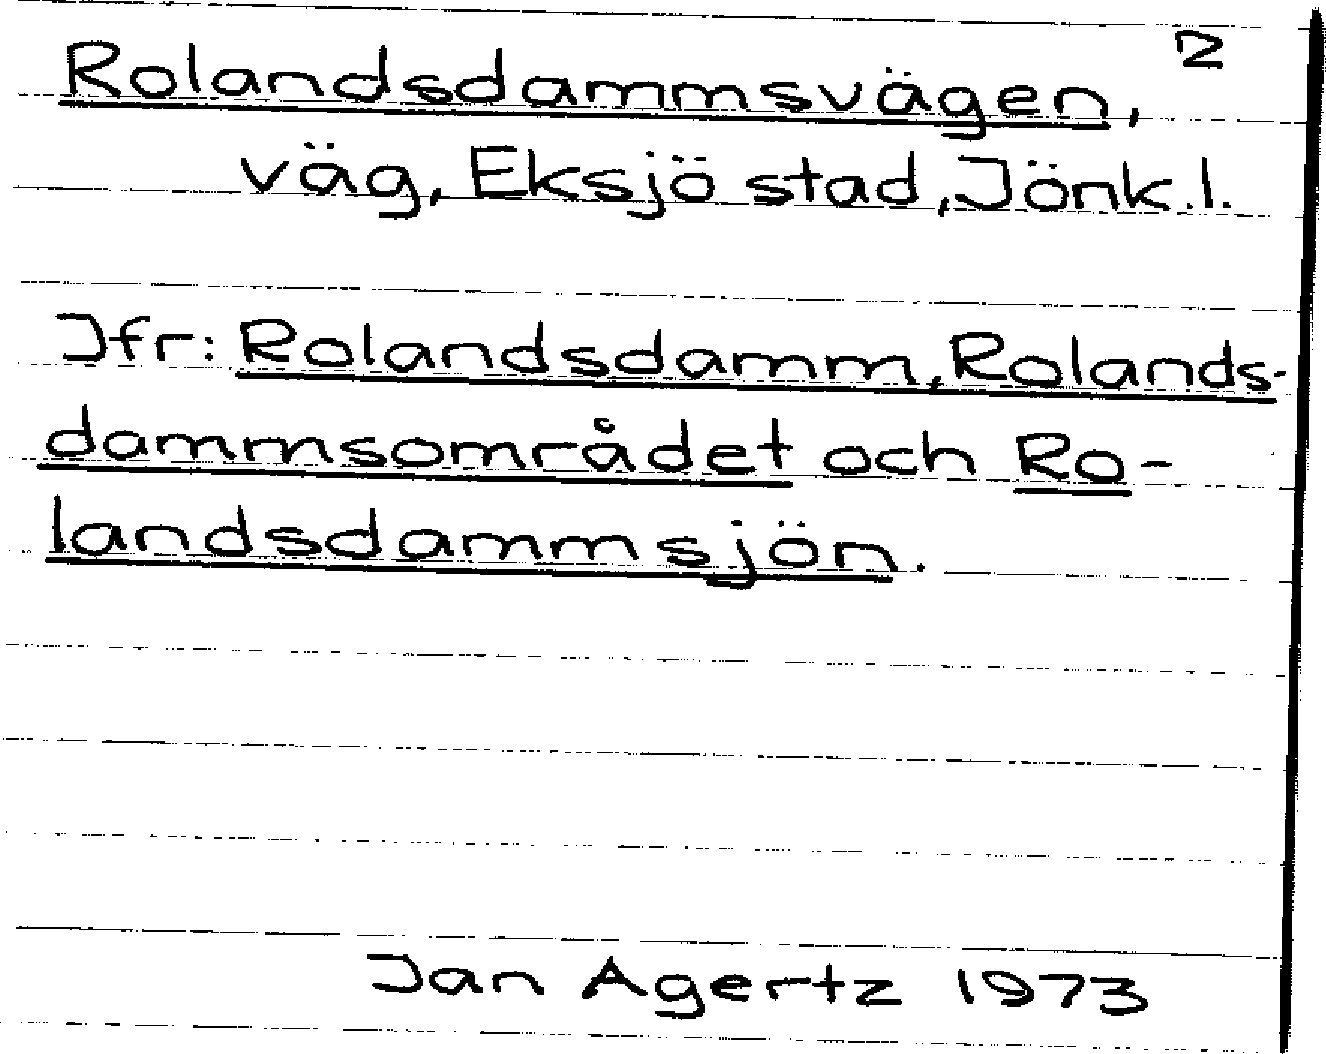 2
Rolandsdammsvägen,
väg, Eksjö stad, Jönk.l.
Jfr: Rolandsdamm, Rolands-
dammsområdet och Ro-
landsdammsjön.
Jan Agertz 1973